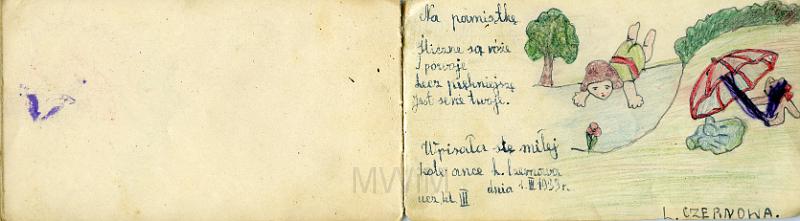 Na pamiątkę
Śliczne są róże
I powoje
Lecz piękniejsze
Jest serce twoje.
Wpisała się miłej
koleżance L. Czernowa
dnia 1.III 1933 r.
ucz. kl. III
L. CZERNOWA.
MWIM